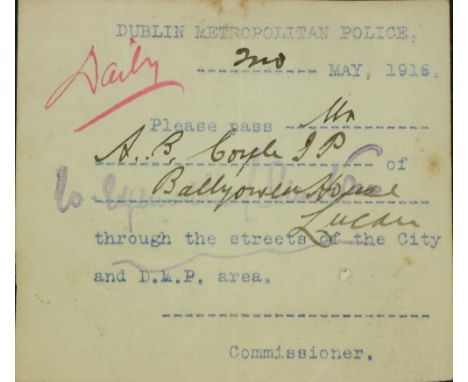 DUBLIN METROPOLITAN POLICE.
2nd MAY, 1916.
Daily
Please pass Mr
A. B. Coyle J P of
Ballyowen House
Lucan
through the streets of the City
and D.M.P. area.
Commissioner.